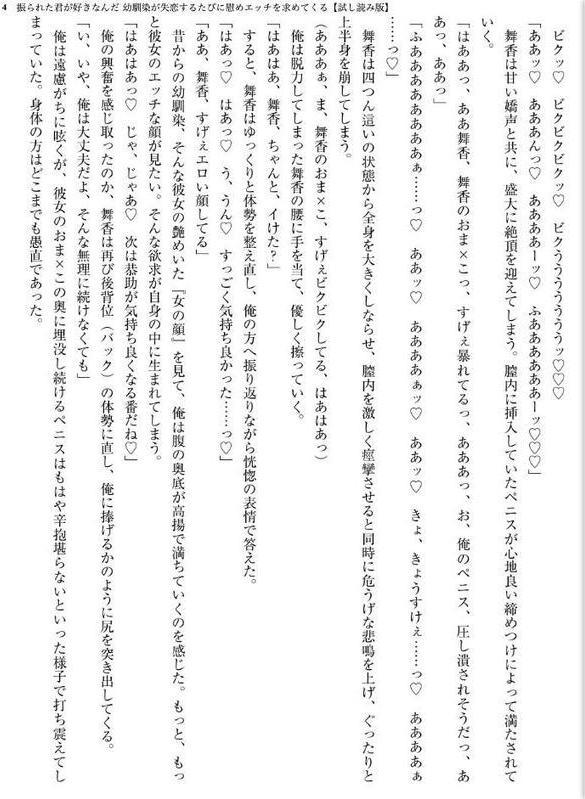 4 振られた君が好きなんだ 幼馴染が失恋するたびに慰めエッチを求めてくる【試し読み版】
ビクッ♡ ビクビクビクッ♡ ビクうううううううッ♡♡♡
「ああッ♡ あああんっ♡ ああああーッ♡ ふああああああーッ♡♡♡」
舞香は甘い嬌声と共に、盛大に絶頂を迎えてしまう。膣内に挿入していたペニスが心地良い締めつけによって満たされて
いく。
「はああっ、ああ舞香、舞香のおま×こっ、すげぇ暴れてるっ、あああっ、お、俺のペニス、圧し潰されそうだっ、あ
あっ、ああっ」
「ふああああああああぁ……っ♡ ああッ♡ ああああぁッ♡ ああッ♡ きょ、きょうすけぇ……っ♡ ああああぁ
……っ♡」
舞香は四つん這いの状態から全身を大きくしならせ、膣内を激しく痙攣させると同時に危うげな悲鳴を上げ、ぐったりと
上半身を崩してしまう。
(あああぁ、ま、舞香のおま×こ、すげぇビクビクしてる、はあはあっ)
俺は脱力してしまった舞香の腰に手を当て、優しく擦っていく。
「はあはあ、舞香、ちゃんと、イけた?」
すると、舞香はゆっくりと体勢を整え直し、俺の方へ振り返りながら恍惚の表情で答えた。
「はあっ♡ はあっ♡ う、うん♡ すっごく気持ち良かった……っ♡」
「ああ、舞香、すげぇエロい顔してる」
昔からの幼馴染、そんな彼女の艶めいた『女の顔』を見て、俺は腹の奥底が高揚で満ちていくのを感じた。もっと、もっ
と彼女のエッチな顔が見たい。そんな欲求が自身の中に生まれてしまう。
「はあはあっ♡ じゃ、じゃあ♡ 次は恭助が気持ち良くなる番だね♡」
俺の興奮を感じ取ったのか、舞香は再び後背位（バック）の体勢に直し、俺に捧げるかのように尻を突き出してくる。
「い、いや、俺は大丈夫だよ、そんな無理に続けなくても」
俺は遠慮がちに呟くが、彼女のおま×この奥に埋没し続けるペニスはもはや辛抱堪らないといった様子で打ち震えてし
まっていた。身体の方はどこまでも愚直であった。